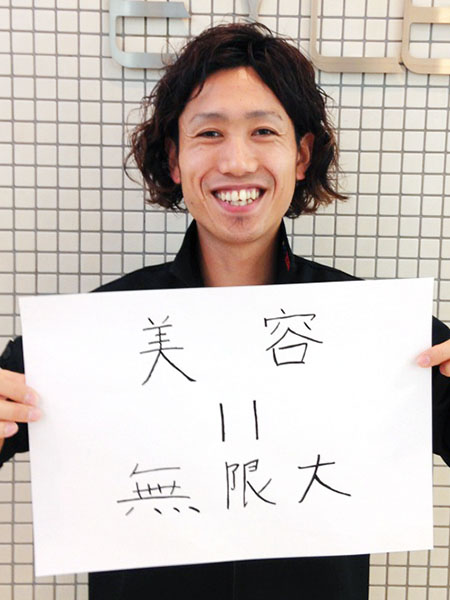 美容
||
無限大